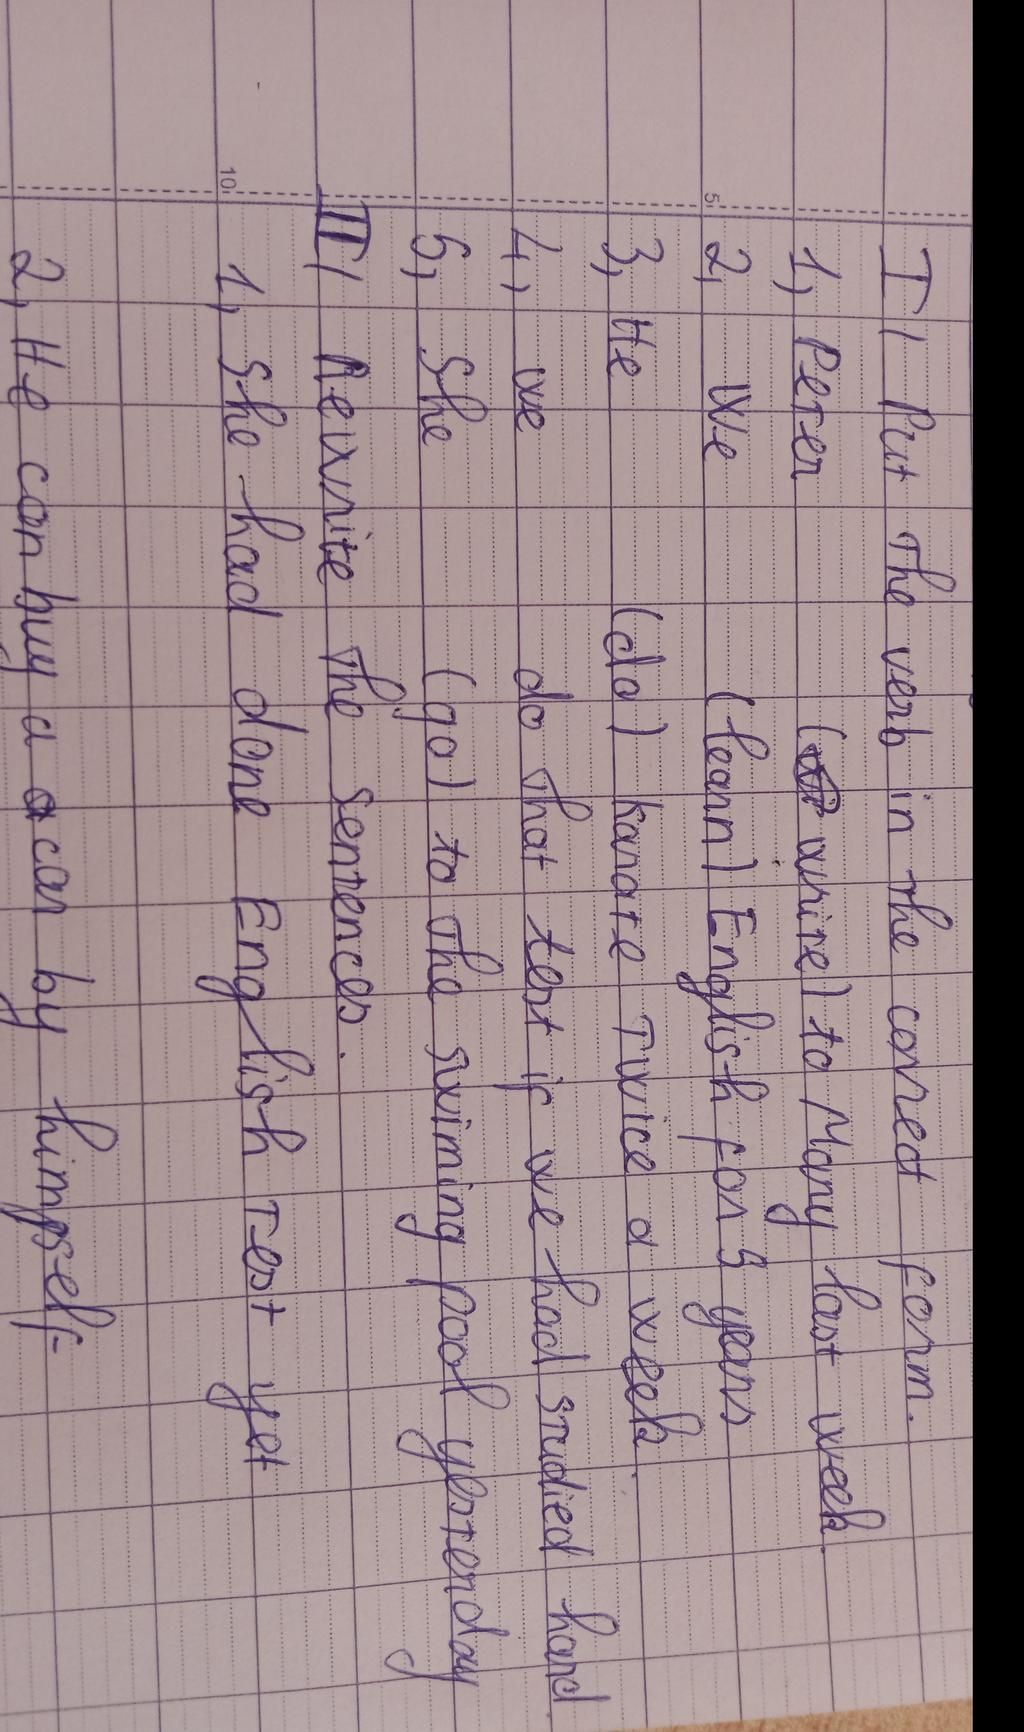 I/ Put the verb in the correct form.
1, Peter (write) to Mary last week.
5
2, We (learn) English for 3 years
3, He (do) karate Twice a week.
4, we do that test if we had studied hard
5, She (go) to the swiming pool yesterday
II/ Rewrite the sentences.
10
1, She had done English Test yet
2, He can buy a car by himpself